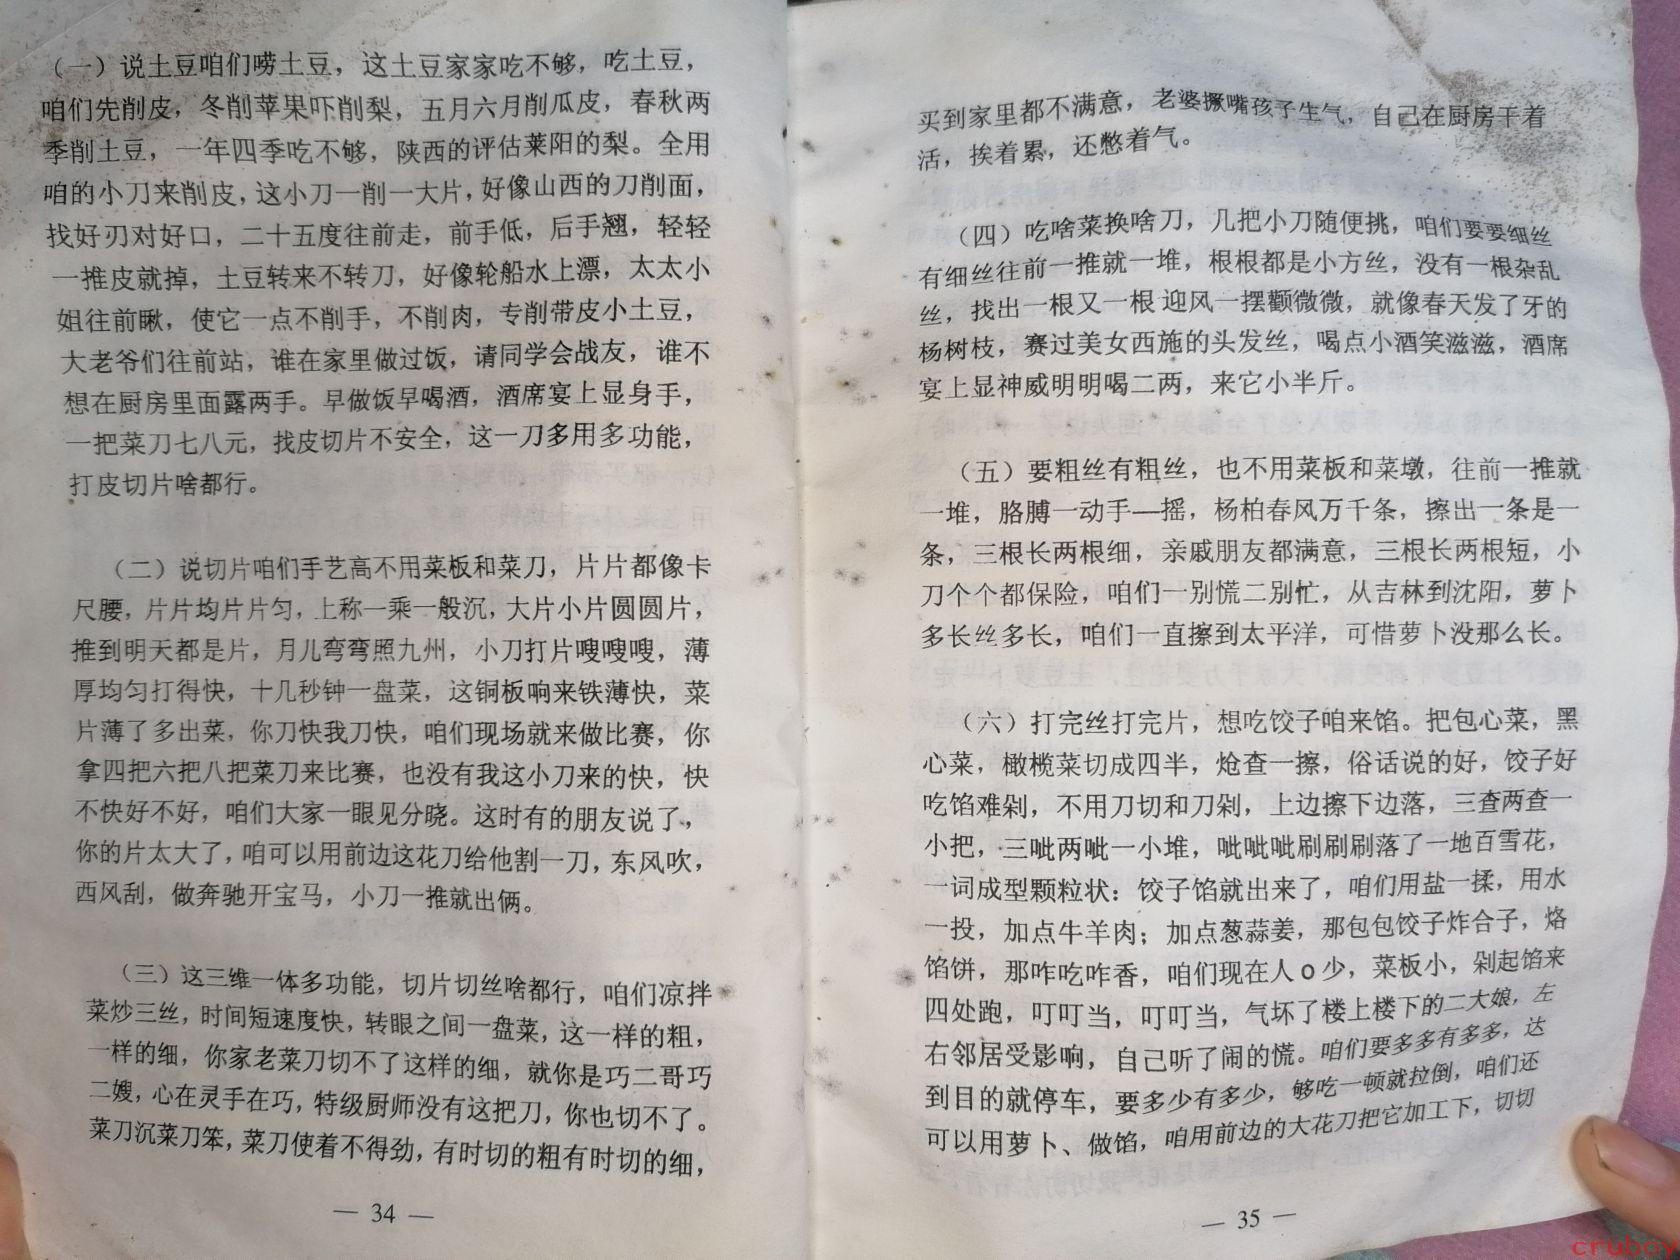 （一）说土豆咱们唠土豆，这土豆家家吃不够，吃土豆，
咱们先削皮，冬削苹果吓削梨，五月六月削瓜皮，春秋两
季削土豆，一年四季吃不够，陕西的评估莱阳的梨。全用
咱的小刀来削皮，这小刀一削一大片，好像山西的刀削面，
找好刃对好口，二十五度往前走，前手低，后手翘，轻轻
一推皮就掉，土豆转来不转刀，好像轮船水上漂，太太小
姐往前瞅，使它一点不削手，不削肉，专削带皮小土豆，
大老爷们往前站，谁在家里做过饭，请同学会战友，谁不
想在厨房里面露两手。早做饭早喝酒，酒席宴上显身手，
一把菜刀七八元，找皮切片不安全，这一刀多用多功能，
打皮切片啥都行。
（二）说切片咱们手艺高不用菜板和菜刀，片片都像卡
尺腰，片片均片片匀，上称一乘一般沉，大片小片圆圆片，
推到明天都是片，月儿弯弯照九州，小刀打片嗖嗖嗖，薄
厚均匀打得快，十几秒钟一盘菜，这铜板响来铁薄快，菜
片薄了多出菜，你刀快我刀快，咱们现场就来做比赛，你
拿四把六把八把菜刀来比赛，也没有我这小刀来的快，快
不快好不好，咱们大家一眼见分晓。这时有的朋友说了，
你的片太大了，咱可以用前边这花刀给他割一刀，东风吹，
西风刮，做奔驰开宝马，小刀一推就出俩。
（三）这三维一体多功能，切片切丝啥都行，咱们凉拌
菜炒三丝，时间短速度快，转眼之间一盘菜，这一样的粗，
一样的细，你家老菜刀切不了这样的细，就你是巧二哥巧
二嫂，心在灵手在巧，特级厨师没有这把刀，你也切不了。
菜刀沉菜刀笨，菜刀使着不得劲，有时切的粗有时切的细，
— 34 —
买到家里都不满意，老婆撅嘴孩子生气，自己在厨房干着
活，挨着累，还憋着气。
（四）吃啥菜换啥刀，几把小刀随便挑，咱们要要细丝
有细丝往前一推就一堆，根根都是小方丝，没有一根杂乱
丝，找出一根又一根 迎风一摆颧微微，就像春天发了牙的
杨树枝，赛过美女西施的头发丝，喝点小酒笑滋滋，酒席
宴上显神威明明喝二两，来它小半斤。
（五）要粗丝有粗丝，也不用菜板和菜墩，往前一推就
一堆，胳膊一动手一摇，杨柏春风万千条，擦出一条是一
条，三根长两根细，亲戚朋友都满意，三根长两根短，小
刀个个都保险，咱们一别慌二别忙，从吉林到沈阳，萝卜
多长丝多长，咱们一直擦到太平洋，可惜萝卜没那么长。
（六）打完丝打完片，想吃饺子咱来馅。把包心菜，黑
心菜，橄榄菜切成四半，炝查一擦，俗话说的好，饺子好
吃馅难剁，不用刀切和刀剁，上边擦下边落，三查两查一
小把，三呲两呲一小堆，呲呲呲刷刷刷落了一地百雪花，
一词成型颗粒状：饺子馅就出来了，咱们用盐一揉，用水
一投，加点牛羊肉；加点葱蒜姜，那包包饺子炸合子，烙
馅饼，那咋吃咋香，咱们现在人o少，菜板小，剁起馅来
四处跑，叮叮当，叮叮当，气坏了楼上楼下的二大娘，左
右邻居受影响，自己听了闹的慌。咱们要多多有多多，达
到目的就停车，要多少有多少，够吃一顿就拉倒，咱们还
可以用萝卜、做馅，咱用前边的大花刀把它加工下，切切
— 35 —
cruboy